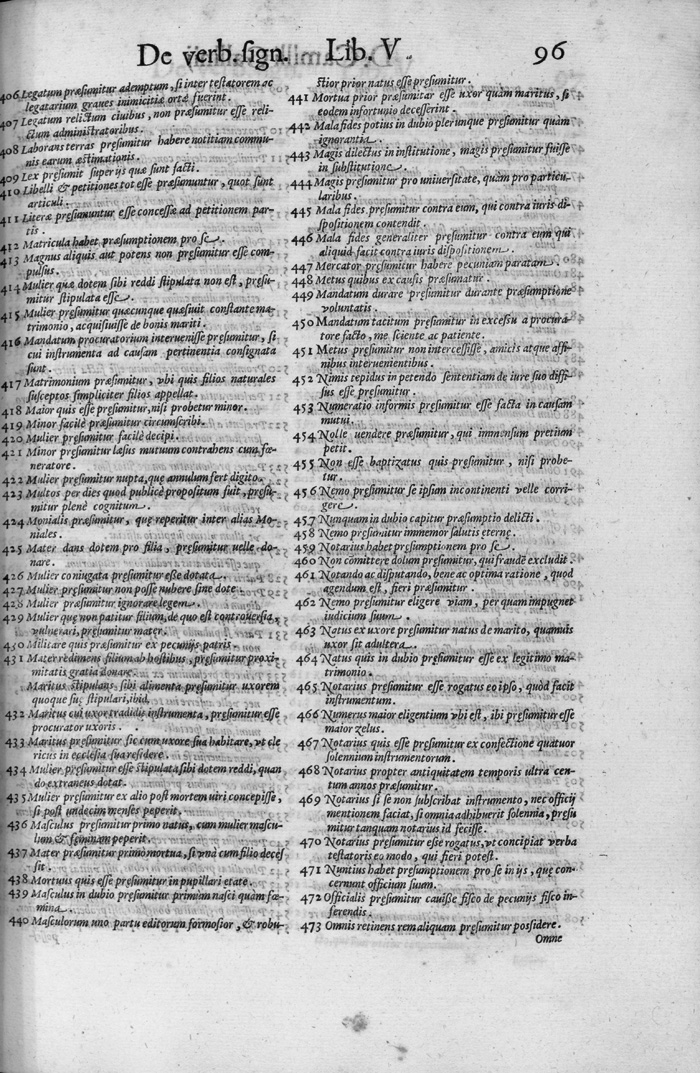 De verb. sign. Lib. V. 96
406 Legatum præsumitur ademptum, si inter testatorem ac
legatarium graues inimicitiæ ortæ fuerint.
407 Legatum relictum ciuibus, non præsumitur esse reli-
ctum administratoribus.
408 Laborans terras pręsumitur habere notitiam commu-
nis earum æstimationis.
409 Lex pręsumit super ijs quæ sunt facti.
410 Libelli & petitiones tot esse præsumuntur, quot sunt
articuli.
411 Literæ pręsumuntur esse concessæ ad petitionem par-
tis.
412 Matricula habet præsumptionem pro se.
413 Magnus aliquis aut potens non pręsumitur esse com-
pulsus.
414 Mulier quæ dotem sibi reddi stipulata non est, pręsu-
mitur stipulata esse.
415 Mulier pręsumitur quæcunque quæsuit constante ma-
trimonio, acquisiuisse de bonis mariti.
416 Mandatum procuratorium interuenisse pręsumitur, si
cui instrumenta ad causam pertinentia consignata
sunt.
417 Matrimonium præsumitur, vbi quis filios naturales
susceptos simpliciter filios appellat.
418 Maior quis esse pręsumitur, nisi probetur minor.
419 Minor facilè præsumitur circumscribi.
420 Mulier pręsumitur facilè decipi.
421 Minor pręsumitur læsus mutuum contrahens cum fœ-
neratore.
422 Mulier pręsumitur nupta, quę annulum fert digito.
423 Multos per dies quod publicè propositum fuit, pręsu-
mitur plenè cognitum.
424 Monialis præsumitur, quę reperitur inter alias Mo-
niales.
425 Mater dans dotem pro filia, pręsumitur uelle do-
nare.
426 Mulier coniugata pręsumitur esse dotata.
427 Mulier pręsumitur non posse nubere sine dote
428 Mulier præsumitur ignorare legem.
429 Mulier quę non patitur filium, de quo est controuersia,
vulnerari, pręsumitur mater.
430 Militare quis præsumitur ex pecunijs patris.
431 Mater redimens filium ab hostibus, pręsumitur proxi-
mitatis gratia donare.
Maritus stipulans sibi alimenta pręsumitur uxorem
quoque suę stipulari, ibid.
432 Maritus cui uxor tradidit instrumenta, pręsumitur esse
procurator uxoris.
433 Maritus pręsumitur sic cum uxore sua habitare, vt cle
ricus in ecclesia sua residere.
434 Mulier pręsumitur esse stipulata sibi dotem reddi, quan
do extraneus dotat.
435 Mulier pręsumitur ex alio post mortem uiri concepisse,
si post undecim menses peperit.
436 Masculus pręsumitur primo natus, cum mulier mascu-
lum & fęminam peperit.
437 Mater præsumitur primo mortua, si vnà cum filio deces
sit.
438 Mortuus quis esse pręsumitur in pupillari etate.
439 Masculus in dubio pręsumitur primùm nasci quàm fœ-
mina.
440 Masculorum uno partu editorum formosior, & robu-
stior prior natus esse pręsumitur.
441 Mortua prior præsumitur esse uxor quàm maritus, si
eodem infortunio decesserint.
442 Mala fides potius in dubio plerunque pręsumitur quàm
ignorantia.
443 Magis dilectus in institutione, magis pręsumitur fuisse
in substitutione.
444 Magis pręsumitur pro uniuersitate, quàm pro particu-
laribus.
445 Mala fides pręsumitur contra eum, qui contra iuris di-
spositionem contendit.
446 Mala fides generaliter pręsumitur contra eum qui
aliquid facit contra iuris dispositionem.
447 Mercator pręsumitur habere pecuniam paratam.
448 Metus quibus ex causis præsumatur.
449 Mandatum durare pręsumitur durante præsumptione
voluntatis.
450 Mandatum tacitum pręsumitur in excessu a procura-
tore facto, me sciente ac patiente.
451 Metus pręsumitur non intercessisse, amicis atque affi-
nibus interuenientibus.
452 Nimis tepidus in petendo sententiam de iure suo diffi-
sus esse pręsumitur.
453 Numeratio informis pręsumitur esse facta in causam
mutui.
454 Nolle uendere præsumitur, qui immensum pretium
petit.
455 Non esse baptizatus quis pręsumitur, nisi probe-
tur.
456 Nemo pręsumitur se ipsum incontinenti velle corri-
gere.
457 Nunquam in dubio capitur præsumptio delicti.
458 Nemo pręsumitur immemor salutis eternę.
459 Notarius habet pręsumptionem pro se.
460 Non cōmittere dolum pręsumitur, qui fraudē excludit.
461 Notando ac disputando, bene ac optima ratione, quod
agendum est, fieri præsumitur.
462 Nemo pręsumitur eligere viam, per quam impugnet
iudicium suum.
463 Natus ex uxore pręsumitur natus de marito, quamuis
uxor sit adultera.
464 Natus quis in dubio pręsumitur esse ex legitimo ma-
trimonio.
465 Notarius pręsumitur esse rogatus eo ipso, quòd facit
instrumentum.
466 Numerus maior eligentium vbi est, ibi pręsumitur esse
maior zelus.
467 Notarius quis esse pręsumitur ex confectione quatuor
solennium instrumentorum.
468 Notarius propter antiquitatem temporis ultra cen-
tum annos præsumitur.
469 Notarius si se non subscribat instrumento, nec officij
mentionem faciat, si omnia adhibuerit solennia, pręsu
mitur tanquam notarius id fecisse.
470 Notarius pręsumitur esse rogatus, vt concipiat verba
testatoris eo modo, qui fieri potest.
471 Nuntius habet pręsumptionem pro se in ijs, quę con-
cernunt officium suum.
472 Officialis pręsumitur cauisse fisco de pecunijs fisco in-
ferendis.
473 Omnis retinens rem aliquam pręsumitur possidere.
Omne